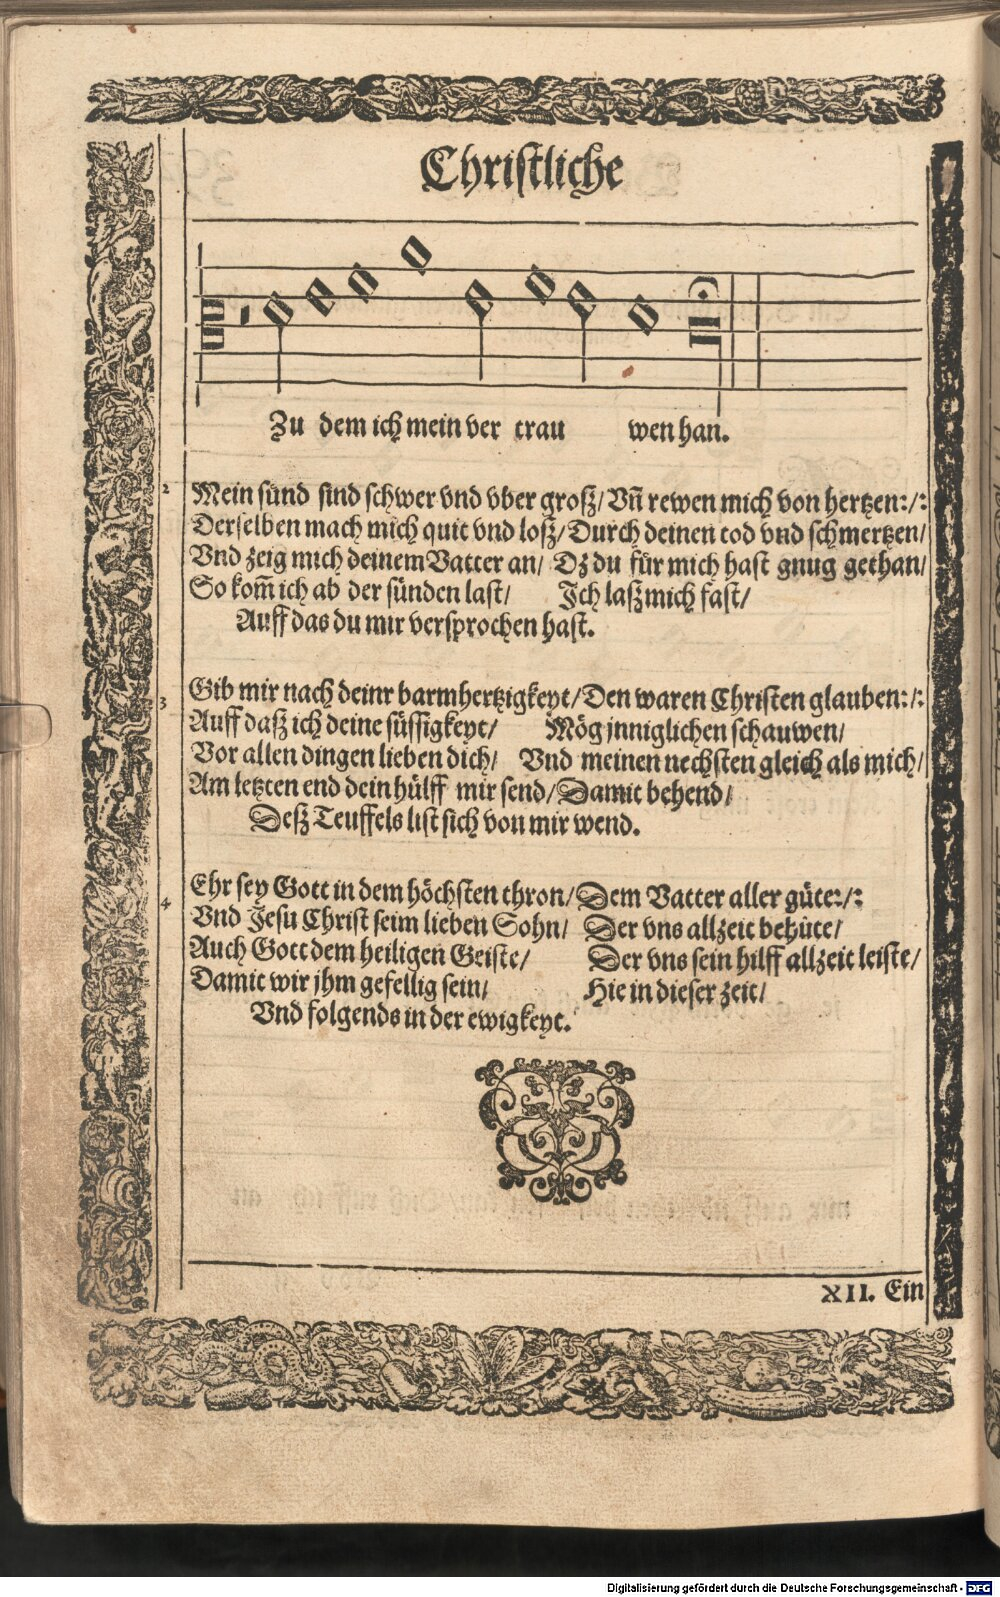 Christliche
Zu dem ich mein ver trau wen han.
2 Mein sünd sind schwer vnd vber groß/ Vn̄ rewen mich von hertzen:/:
Derselben mach mich quit vnd loß/ Durch deinen tod vnd schmertzen/
Vnd zeig mich deinem Vatter an/ Dz du für mich hast gnug gethan/
So kom̄ ich ab der sünden last/ Ich laß mich fast/
Auff das du mir versprochen hast.
3 Gib mir nach deinr barmhertzigkeyt/ Den waren Christen glauben:/:
Auff daß ich deine süssigkeyt/ Mög jnniglichen schauwen/
Vor allen dingen lieben dich/ Vnd meinen nechsten gleich als mich/
Am letzten end dein hülff mir send/ Damit behend/
Deß Teuffels list sich von mir wend.
4 Ehr sey Gott in dem höchsten thron/ Dem Vatter aller güte:/:
Vnd Jesu Christ seim lieben Sohn/ Der vns allzeit behüte/
Auch Gott dem heiligen Geiste/ Der vns sein hilff allzeit leiste/
Damit wir jhm gefellig sein/ Hie in dieser zeit/
Vnd folgends in der ewigkeyt.
XII. Ein
Digitalisierung gefördert durch die Deutsche Forschungsgemeinschaft - DFG